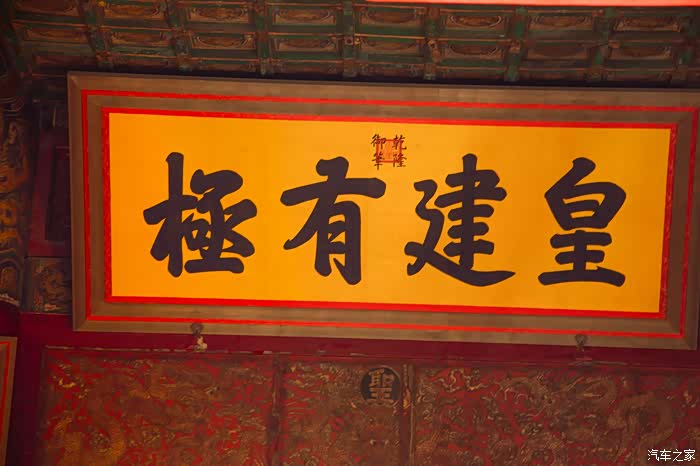 皇建有極
乾隆
御筆
聖
汽车之家